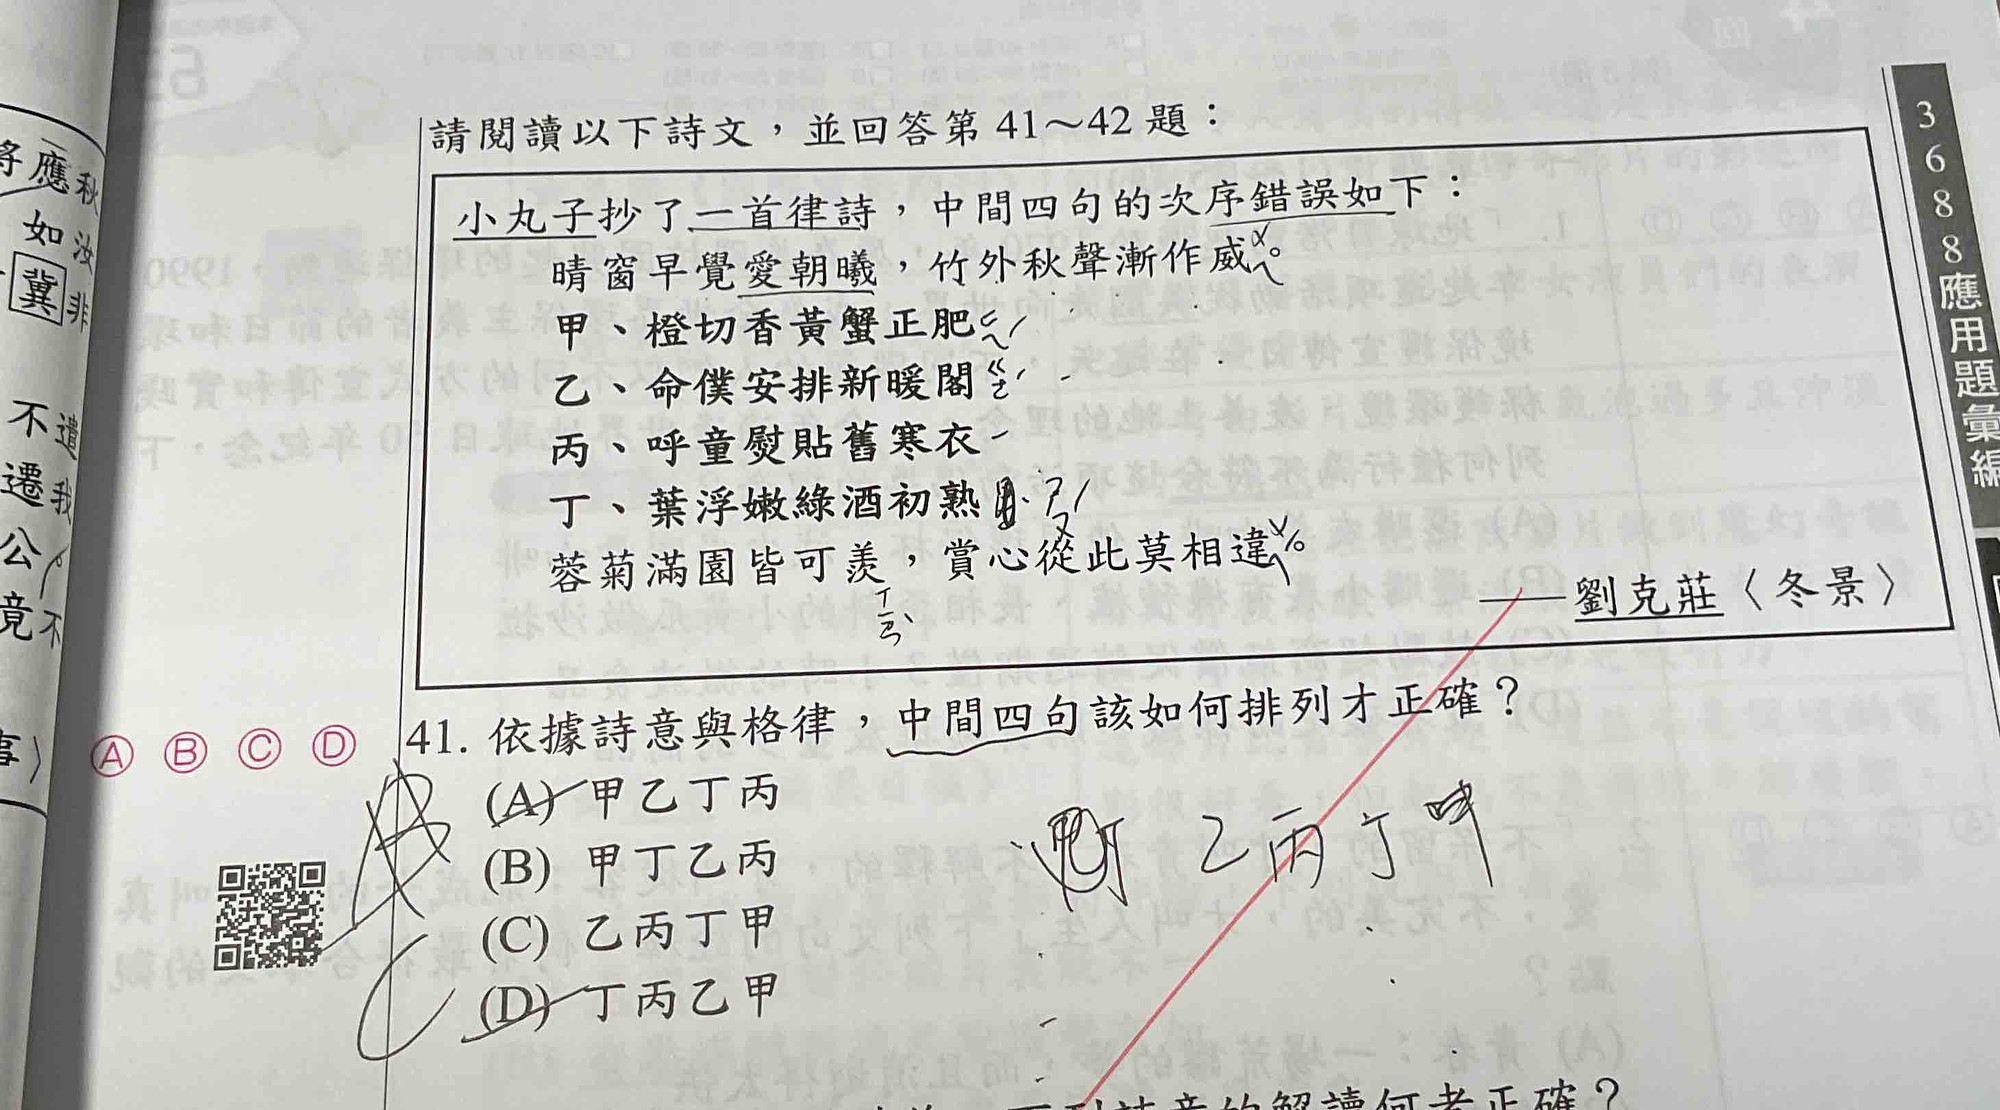 請閱讀以下詩文，並回答第 41～42 題：
小丸子抄了一首律詩，中間四句的次序錯誤如下：
晴窗早覺愛朝曦，竹外秋聲漸作威。
甲、橙切香黃蟹正肥
乙、命僕安排新暖閣
丙、呼童熨貼舊寒衣
丁、葉浮嫩綠酒初熟
蓉菊滿園皆可羨，賞心從此莫相違。
——劉克莊〈冬景〉
Ⓐ Ⓑ Ⓒ Ⓓ
41. 依據詩意與格律，中間四句該如何排列才正確？
(A) 甲乙丁丙
(B) 甲丁乙丙
(C) 乙丙丁甲
(D) 丁丙乙甲
乙丙丁甲
3688應用題彙編
秋汝非
將應如冀
遣我
不遷公竟不